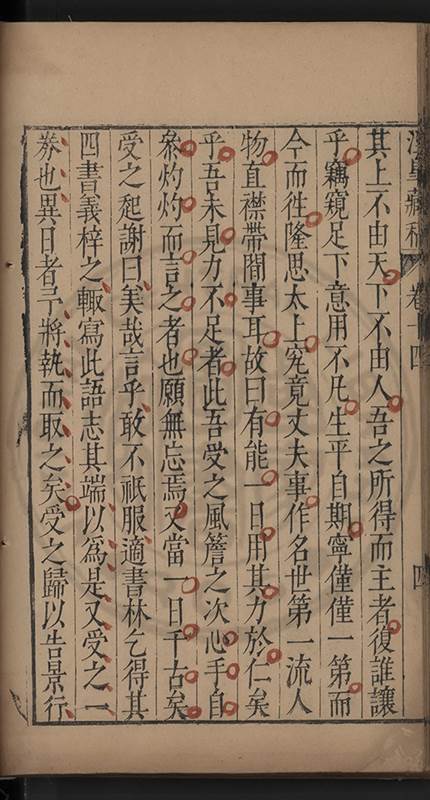 藏稿 卷十四 四
其上不由天下不由人吾之所得而主者復誰讓
乎竊窺足下意用不凡生平自期寧僅僅一第而
今而徃隆思太上究竟丈夫事作名世第一流人
物直襟帶間事耳故曰有能一日用其力於仁矣
乎吾未見力不足者此吾受之風簷之次心手自
叅灼灼而言之者也願無忘焉又當一日千古矣
受之起謝曰美哉言乎敢不祇服適書林乞得其
四書義梓之輙寫此語志其端以為是又受之一
券也異日者予將執而取之矣受之歸以告景行